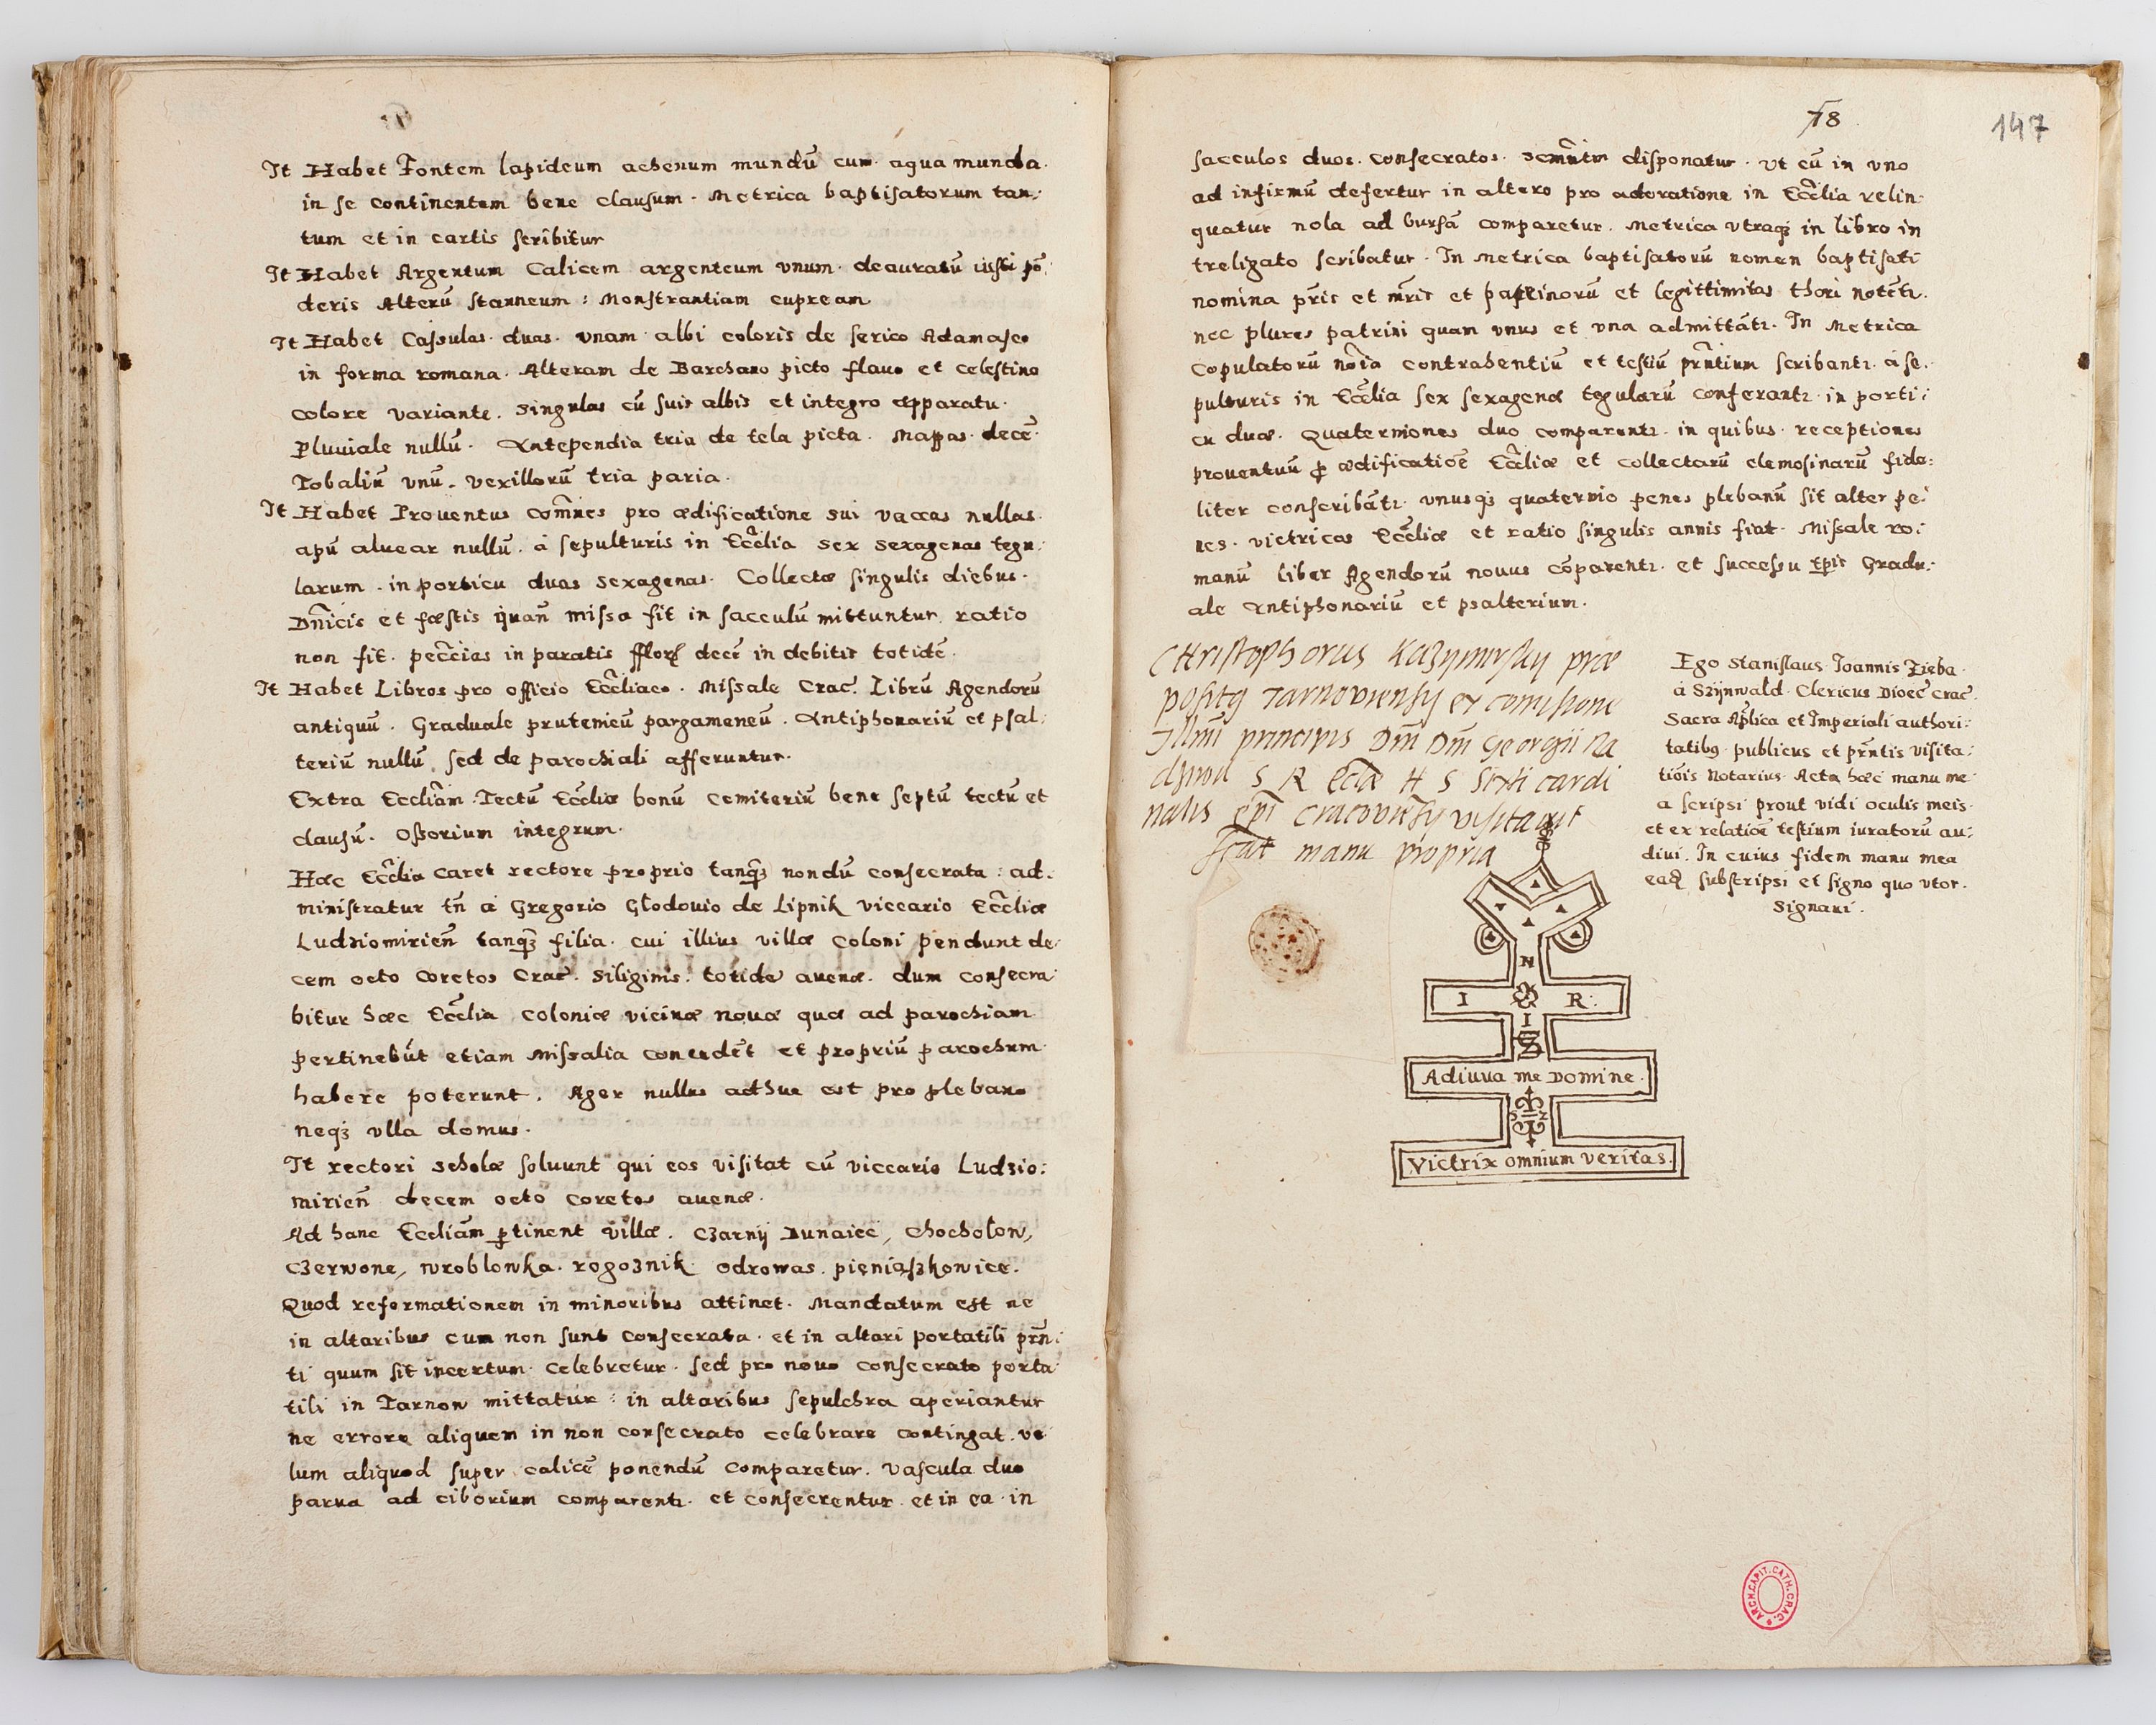 It Habet Fontem lapideum ahenum mundū cum aqua munda
in se continentem bene clausum. Metrica baptisatorum tan:
tum et in cartis scribitur
It Habet Argentum Calicem argenteum vnum deauratū iusti pō:
deris Alterū stanneum: Monstrantiam cupream
It Habet Cassulas duas. vnam albi coloris de serico Adamasco
in forma romana. Alteram de Barchano picto flauo et celestino
colore variante. singulas cū suis albis et integro apparatu.
Pluuiale nullū. Antependia tria de tela picta. Mappas decē
Tobaliū vnū. vexillorū tria paria.
It Habet Prouentus com̄nes pro ædificatione sui vaccas nullas
apū aluear nullū. à sepulturis in Eccl̄ia sex sexagenas tegu:
larum. in porticu duas sexagenas. Collectæ singulis diebus
Dn̄icis et fæstis quan̄ missa fit in sacculū mittuntur ratio
non fit. pecc̄ias in paratis fflor decē in debitis totidē.
It Habet Libros pro officio Eccl̄iaco. Missale Crac. Librū Agendorū
antiquū. Graduale prutenicū pargameneū. Antiphonariū et psal:
teriū nullū sed de parochiali afferuntur.
Extra Eccliām Tectū Eccl̄iæ bonū Cemiteriū bene septū tectū et
clausū. Ossorium integrum.
Hæc Eccl̄ia caret rectore proprio tanqȝ nondū consecrata: ad:
ministratur tn̄ à Gregorio Głodouio de Lipnik viccario Eccl̄iæ
Ludziomirien̄ tanqȝ filia. cui illius villæ coloni pendunt de:
cem octo coretos Crac. siliginis. totide auenæ. dum consecra
bitur hæc Eccl̄ia coloniæ vicinæ nouæ quæ ad parochiam
pertinebūt etiam Missalia concedēt et propriū parochum
habere poterunt. Ager nullus adhuc est pro plebano
neqȝ vlla domus.
It rectori scholæ soluunt qui eos visitat cū viccario Ludzio:
mirien̄ decem octo coretos auenæ.
Ad hanc Eccliām ptinent villæ. Czarnÿ Dunaiec, Chochołow,
Czerwone, wroblowka. rogoznik odrowas. pieniąszkowice.
Quod reformationem in minoribus attinet. Mandatum est ne
in altaribus cum non sunt consecrata et in altari portatili prn̄:
ti quum sit incertum celebretur. sed pro nouo consecrato porta
tili in Tarnow mittatur: in altaribus sepulchra aperiantur
ne errore aliquem in non consecrato celebrare contingat ve
lum aliquod super calicē ponendū comparetur. vascula duo
parua ad ciborium comparentr. et consecrentur et in ea in
78
147
sacculos duos consecratos disponatur. vt cū in vno
ad infirmū defertur in altero pro adoratione in Eccl̄ia relin:
quatur nola ad bursā comparetur. Metrica vtraqȝ in libro in
treligato scribatur. In Metrica baptisatorū nomen baptisati
nomina pr̄is et mr̄is et patrinorū et legittimitas thori notētr.
nec plures patrini quam vnus et vna admittātr. In Metrica
copulatorū noīa contrahentiū et testiū prn̄tium scribantr. à se:
pulturis in Eccl̄ia sex sexagenæ tegularū conferantr in porti:
cu duæ. Quaterniones duo comparentr. in quibus receptiones
prouentuū p ædificatiōe Eccl̄iæ et collectarū elemosinarū fide:
liter conscribātr. vnusqȝ quaternio penes plebanū sit alter pe:
nes victricos Eccl̄iæ et ratio singulis annis fiat. Missale ro:
manū liber Agendorū nouus cōparentr. et successu tpis Gradu:
ale Antiphonariū et psalterium.
Christophorus Kazymirsky præ
positq Tarnoviensy ex comisione
Illmi principis Dm̄ Dm̄ Georgii Ra
dziwil S R Eclæ H S Sixti cardi
nalis ēpi Cracoviēsy visitauit
manu propria
Ego Stanislaus Joannis Zieba
à Szÿnwald Clericus Dioec̄ Crac.
Sacra Ap̄lica et Imperiali authori:
tatibq publicus et prn̄tis visita:
tiōis Notarius Acta hæc manu me
a scripsi prout vidi oculis meis
et ex relatiōe testium iuratorū au:
diui. In cuius fidem manu mea
eadē subscripsi et signo quo vtor.
signaui.
N
I R:
I
Adiuua me Domine.
Victrix omnium veritas.
ARCH. CAPIT. CATH. CRAC.